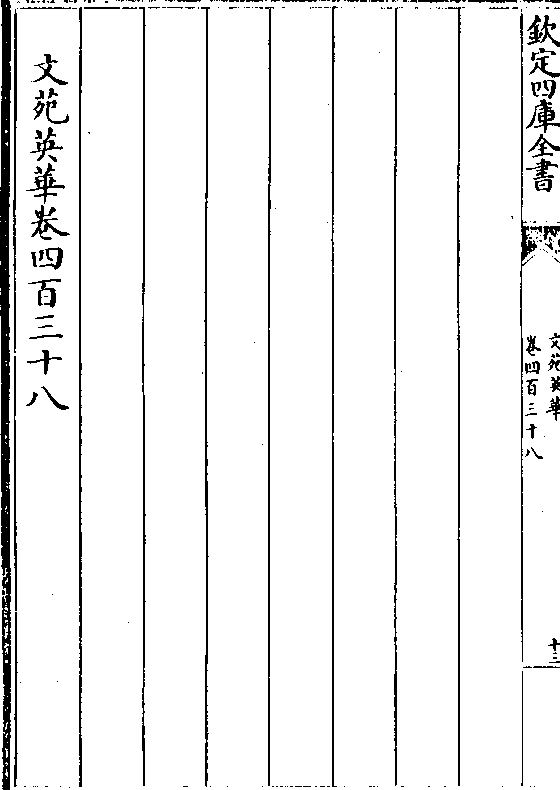 欽定四庫全書
文苑英華
卷四百三十八
十三
文苑英華卷四百三十八